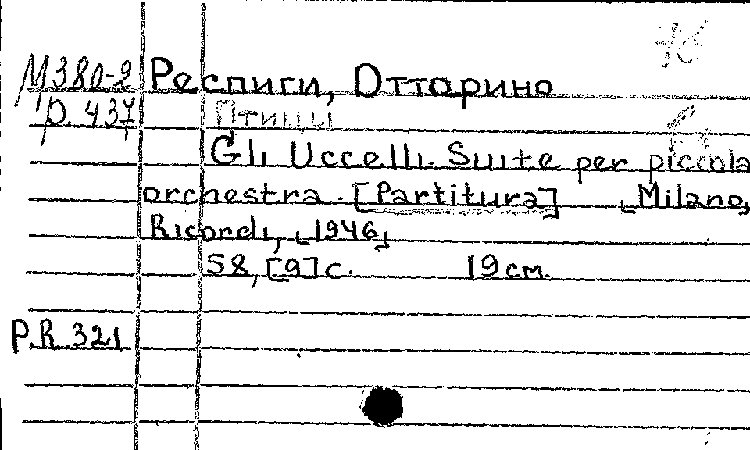 М380-2 Респиги, Отторино
р. 437 Птицы
Gli Uccelli. Suite per piccola
orchestra. [Partitura] Milano,
Ricordi, 1946,
58, [9] с. 19 см.
P.R. 321